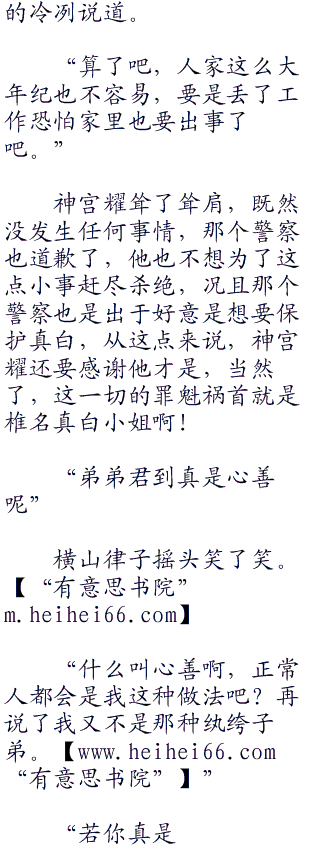 的冷冽说道。
“算了吧，人家这么大
年纪也不容易，要是丢了工
作恐怕家里也要出事了
吧。”
神宫耀耸了耸肩，既然
没发生任何事情，那个警察
也道歉了，他也不想为了这
点小事赶尽杀绝，况且那个
警察也是出于好意是想要保
护真白，从这点来说，神宫
耀还要感谢他才是，当然
了，这一切的罪魁祸首就是
椎名真白小姐啊！
“弟弟君到真是心善
呢”
横山律子摇头笑了笑。
【“有意思书院”
m.heihei66.com】
“什么叫心善啊，正常
人都会是我这种做法吧？再
说了我又不是那种纨绔子
弟。【www.heihei66.com
“有意思书院”】”
“若你真是